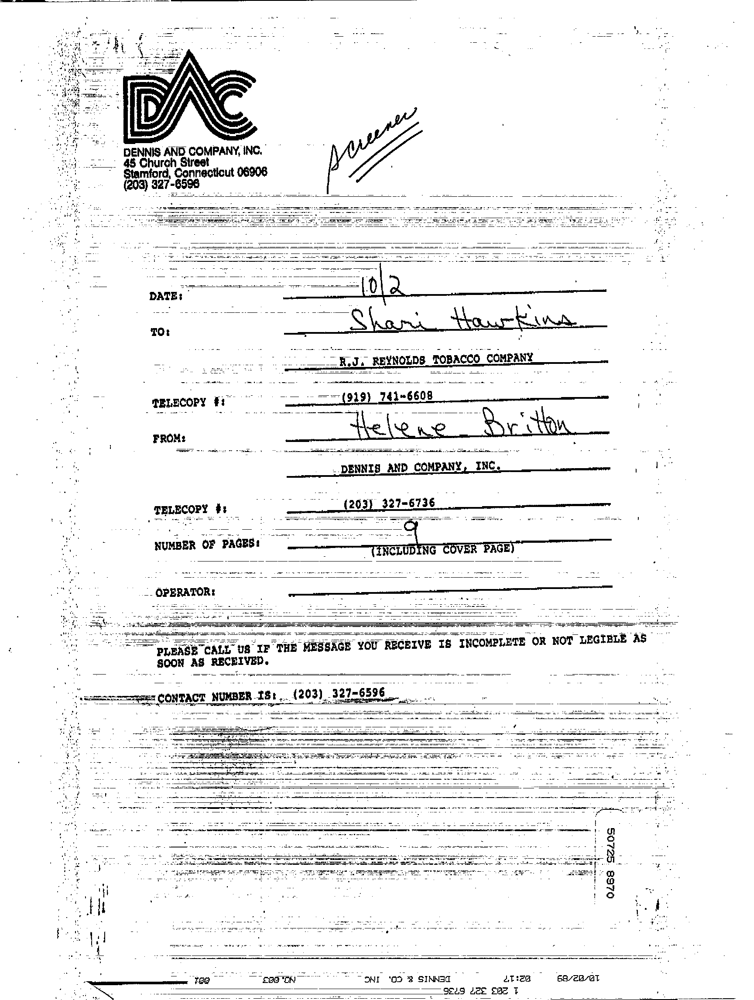 DAC
DENNIS AND COMPANY, INC.
45 Church Street
Stamford, Connecticut 06906
(203) 327-6596
Screener
DATE: 10/2
TO: Shari Hawkins
R.J. REYNOLDS TOBACCO COMPANY
TELECOPY #: (919) 741-6608
FROM: Helene Britton
DENNIS AND COMPANY, INC.
TELECOPY #: (203) 327-6736
NUMBER OF PAGES: 9
(INCLUDING COVER PAGE)
OPERATOR:
PLEASE CALL US IF THE MESSAGE YOU RECEIVE IS INCOMPLETE OR NOT LEGIBLE AS
SOON AS RECEIVED.
CONTACT NUMBER IS: (203) 327-6596
50725 8970
1 203 327 6736
10/02/89 02:17 DENNIS & CO. INC NO.003 001